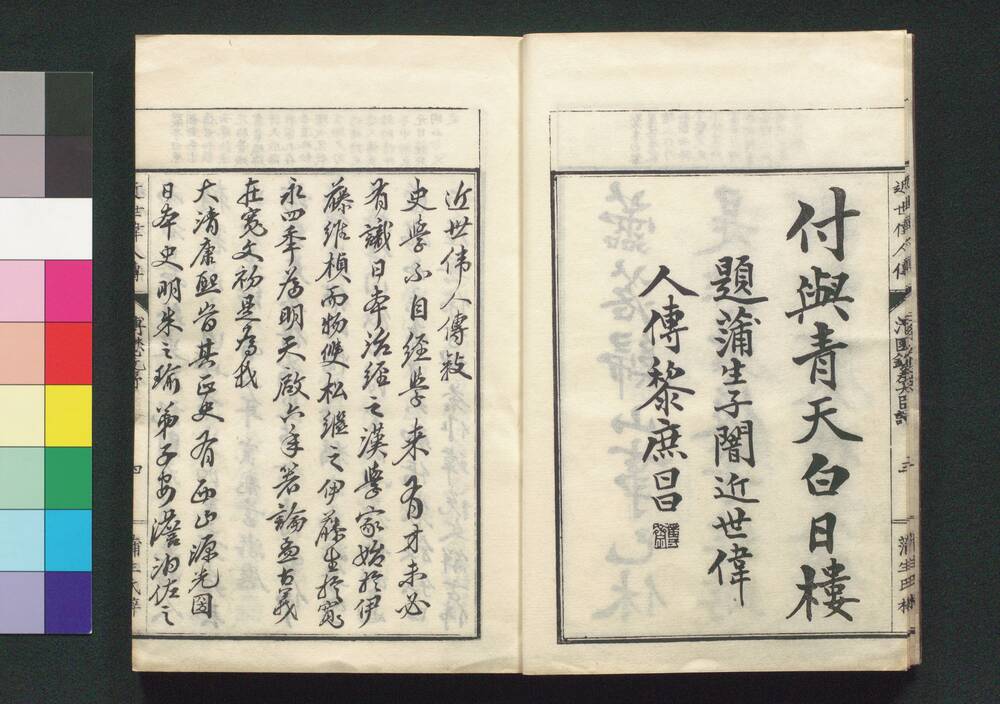 付與青天白日樓
題蒲生子闇近世偉
人傳黎庶昌
近世偉人傳
三
近世偉人傳敘
史學不自經學來有才未必
有識日本治經之漢學家始於伊
藤維楨而物雙松繼之伊藤生於寬
永四季為明天啟六年著論孟古義
在寬文初是為我
大清康熙昔其正史有西山源光圀
日本史明朱之瑜弟子安澹泊佐之
四